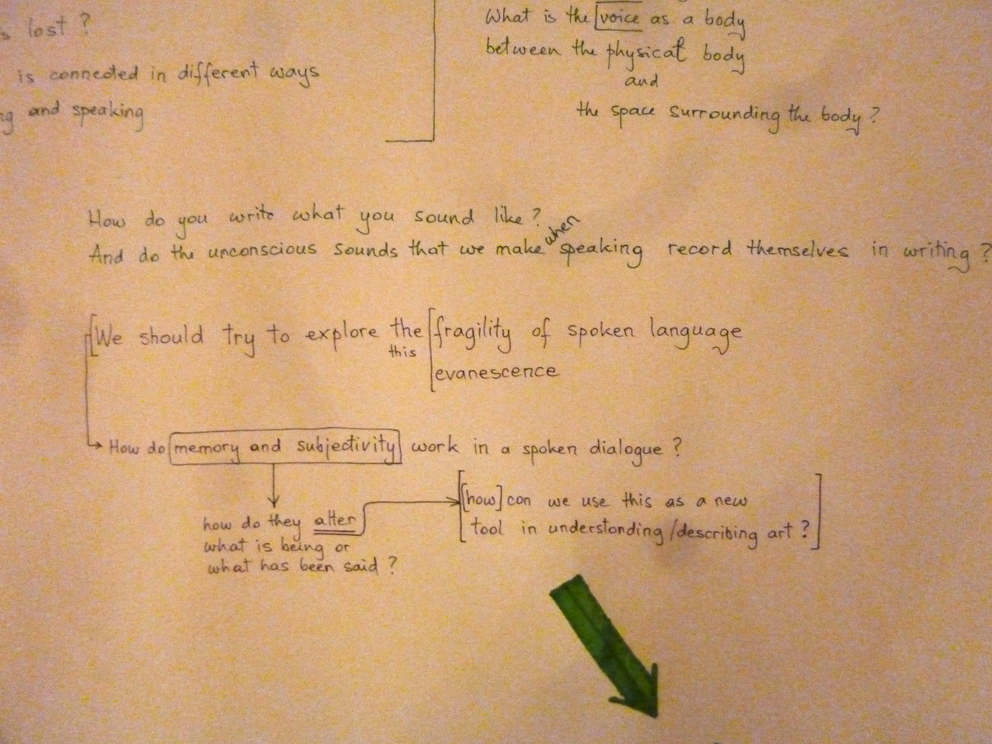 lost ?
is connected in different ways
and speaking
What is the voice as a body
between the physical body
and
the space surrounding the body ?
How do you write what you sound like ?
And do the unconscious sounds that we make when speaking record themselves in writing ?
We should try to explore the fragility of spoken language
this
evanescence
How do memory and subjectivity work in a spoken dialogue ?
how do they alter
what is being or
what has been said ?
[how] can we use this as a new
tool in understanding/describing art ?